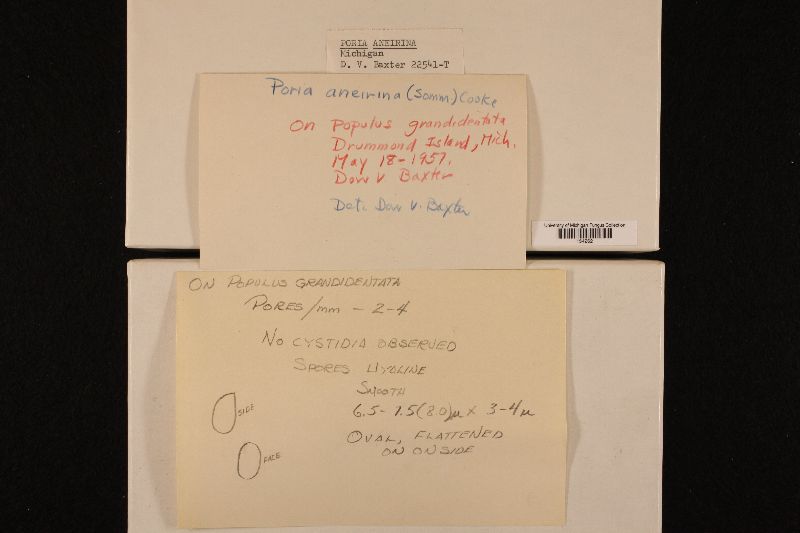 PORIA ANEIRINA
Michigan
D. V. Baxter 22541-T
Poria aneirina (Somm) Cooke
On Populus grandidentata
Drummond Island, Mich.
May 18-1957.
Dow V Baxter
Det. Dow V. Baxter
University of Michigan Fungus Collection
ON POPULUS GRANDIDENTATA
PORES/mm - 2-4
NO CYSTIDIA OBSERVED
SPORES HYALINE
SMOOTH
6.5-7.5(8.0)µ x 3-4µ
OVAL, FLATTENED
ON ON SIDE
SIDE
FACE